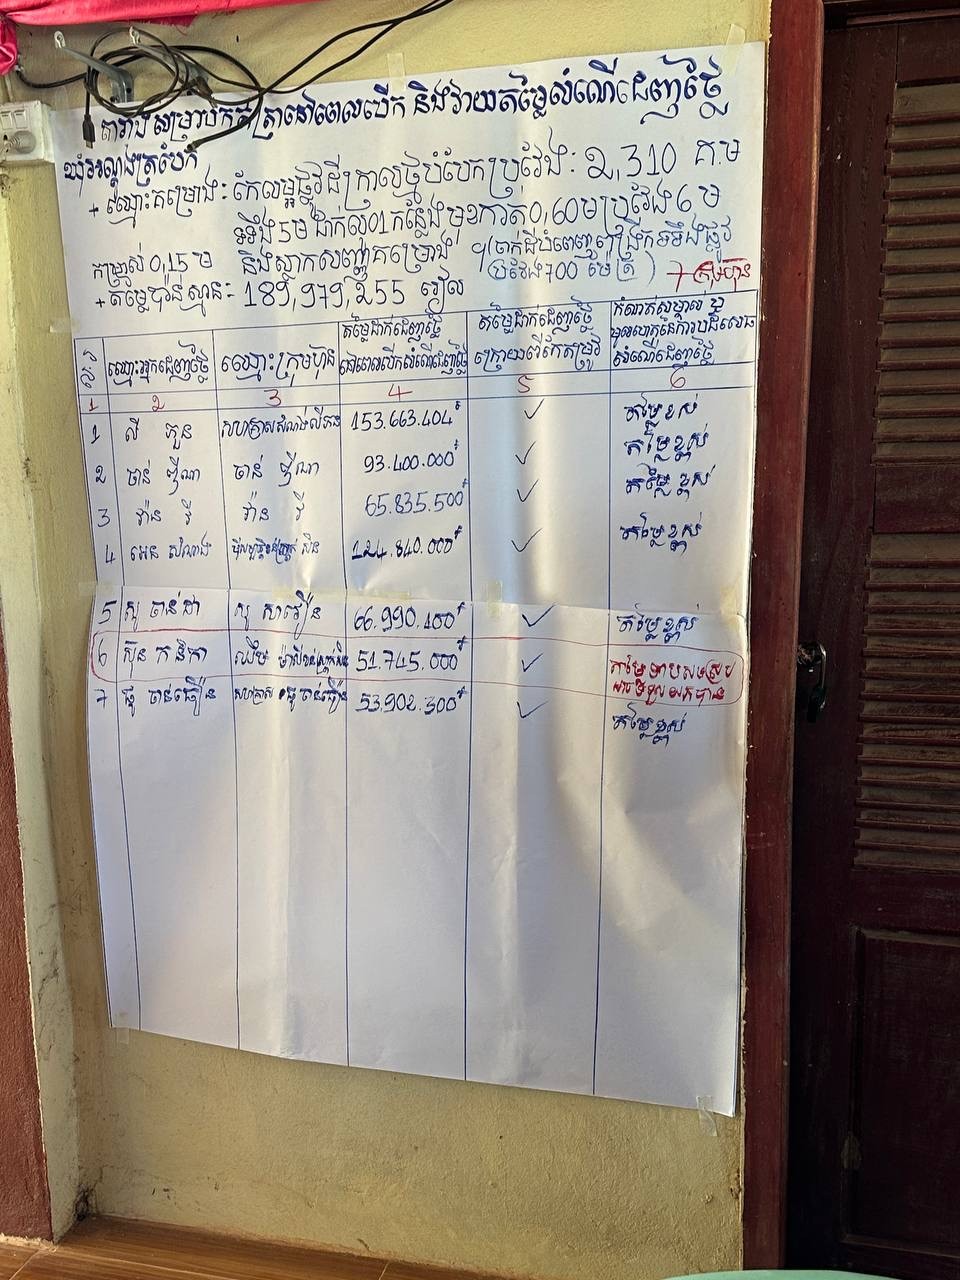 តារាងសម្រាប់កត់ត្រានៅពេលបើក និងវាយតម្លៃសំណើដេញថ្លៃ
ឃុំអណ្តូងត្របែក
+ ឈ្មោះគម្រោង: កែលម្អផ្លូវដីក្រាលថ្មបំបែកប្រវែង: ២,310 គ.ម
ទទឹង 5ម ដាក់លូ01កន្លែងមុខកាត់0,60មប្រវែង 6 ម
កម្រាស់ 0,15 ម និងស្លាកសញ្ញាគម្រោង (ចាក់ដីបំពេញពង្រីកទទឹងផ្លូវ
ប្រវែង700 ម៉ែត្រ ) 7 ក្រុមហ៊ុន
+ តម្លៃប៉ាន់ស្មាន: 189,979,255 រៀល
ល.រ ឈ្មោះអ្នកដេញថ្លៃ ឈ្មោះក្រុមហ៊ុន តម្លៃដាក់ដេញថ្លៃ នៅពេលបើកសំណើដេញថ្លៃ តម្លៃដាក់ដេញថ្លៃ ក្រោយពីកែតម្រូវ កំណត់សម្គាល់ ឬ មូលហេតុនៃការបដិសេធ សំណើដេញថ្លៃ
1 ២ 3 4 5 6
1 លី គួន សហគ្រាសសំណង់លីគួន 153.663.404៛ ✓ តម្លៃខ្ពស់
2 ចាន់ ឌីណា ចាន់ ឌីណា 93.400.000៛ ✓ តម្លៃខ្ពស់
3 វ៉ាន រី វ៉ាន រី 65.835.500៛ ✓ តម្លៃខ្ពស់
4 អេន សំណាង 124.840.000៛ ✓ តម្លៃខ្ពស់
5 សូ ចាន់ដា សូ សាវឿន 66.990.400៛ ✓ តម្លៃខ្ពស់
6 ស៊ុន កនិកា ឈឹម 51.745.000៛ ✓ តម្លៃទាបសមស្រប អាចទទួលយកបាន
7 ផូ ចាន់ធឿន សហគ្រាស ផូ ចាន់ធឿន 53.902.300៛ ✓ តម្លៃខ្ពស់